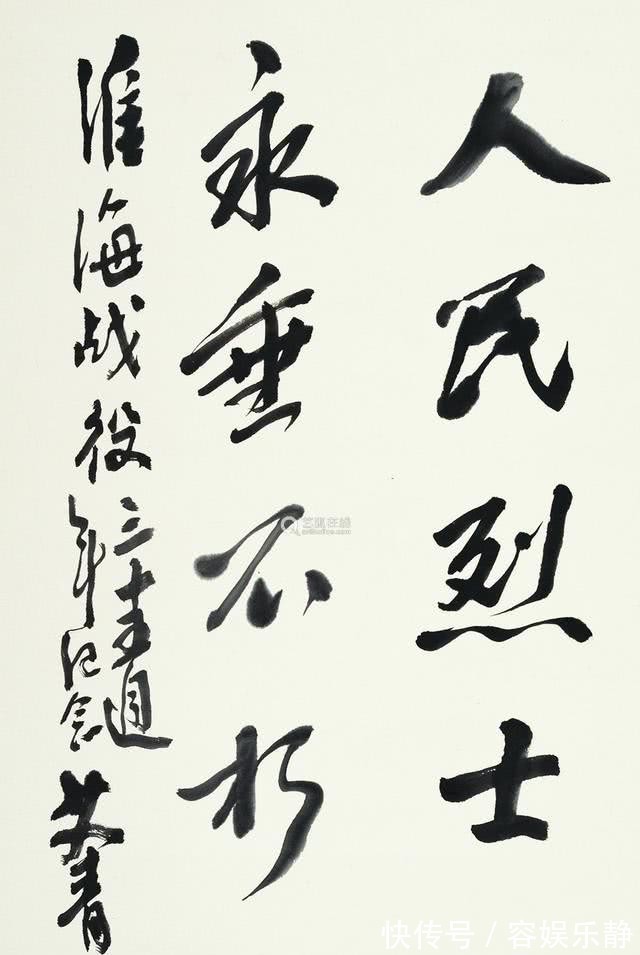 人民烈士
永垂不朽
淮海战役三十五週
年纪念
艾青
艺狐在线
快传号／容娱乐静